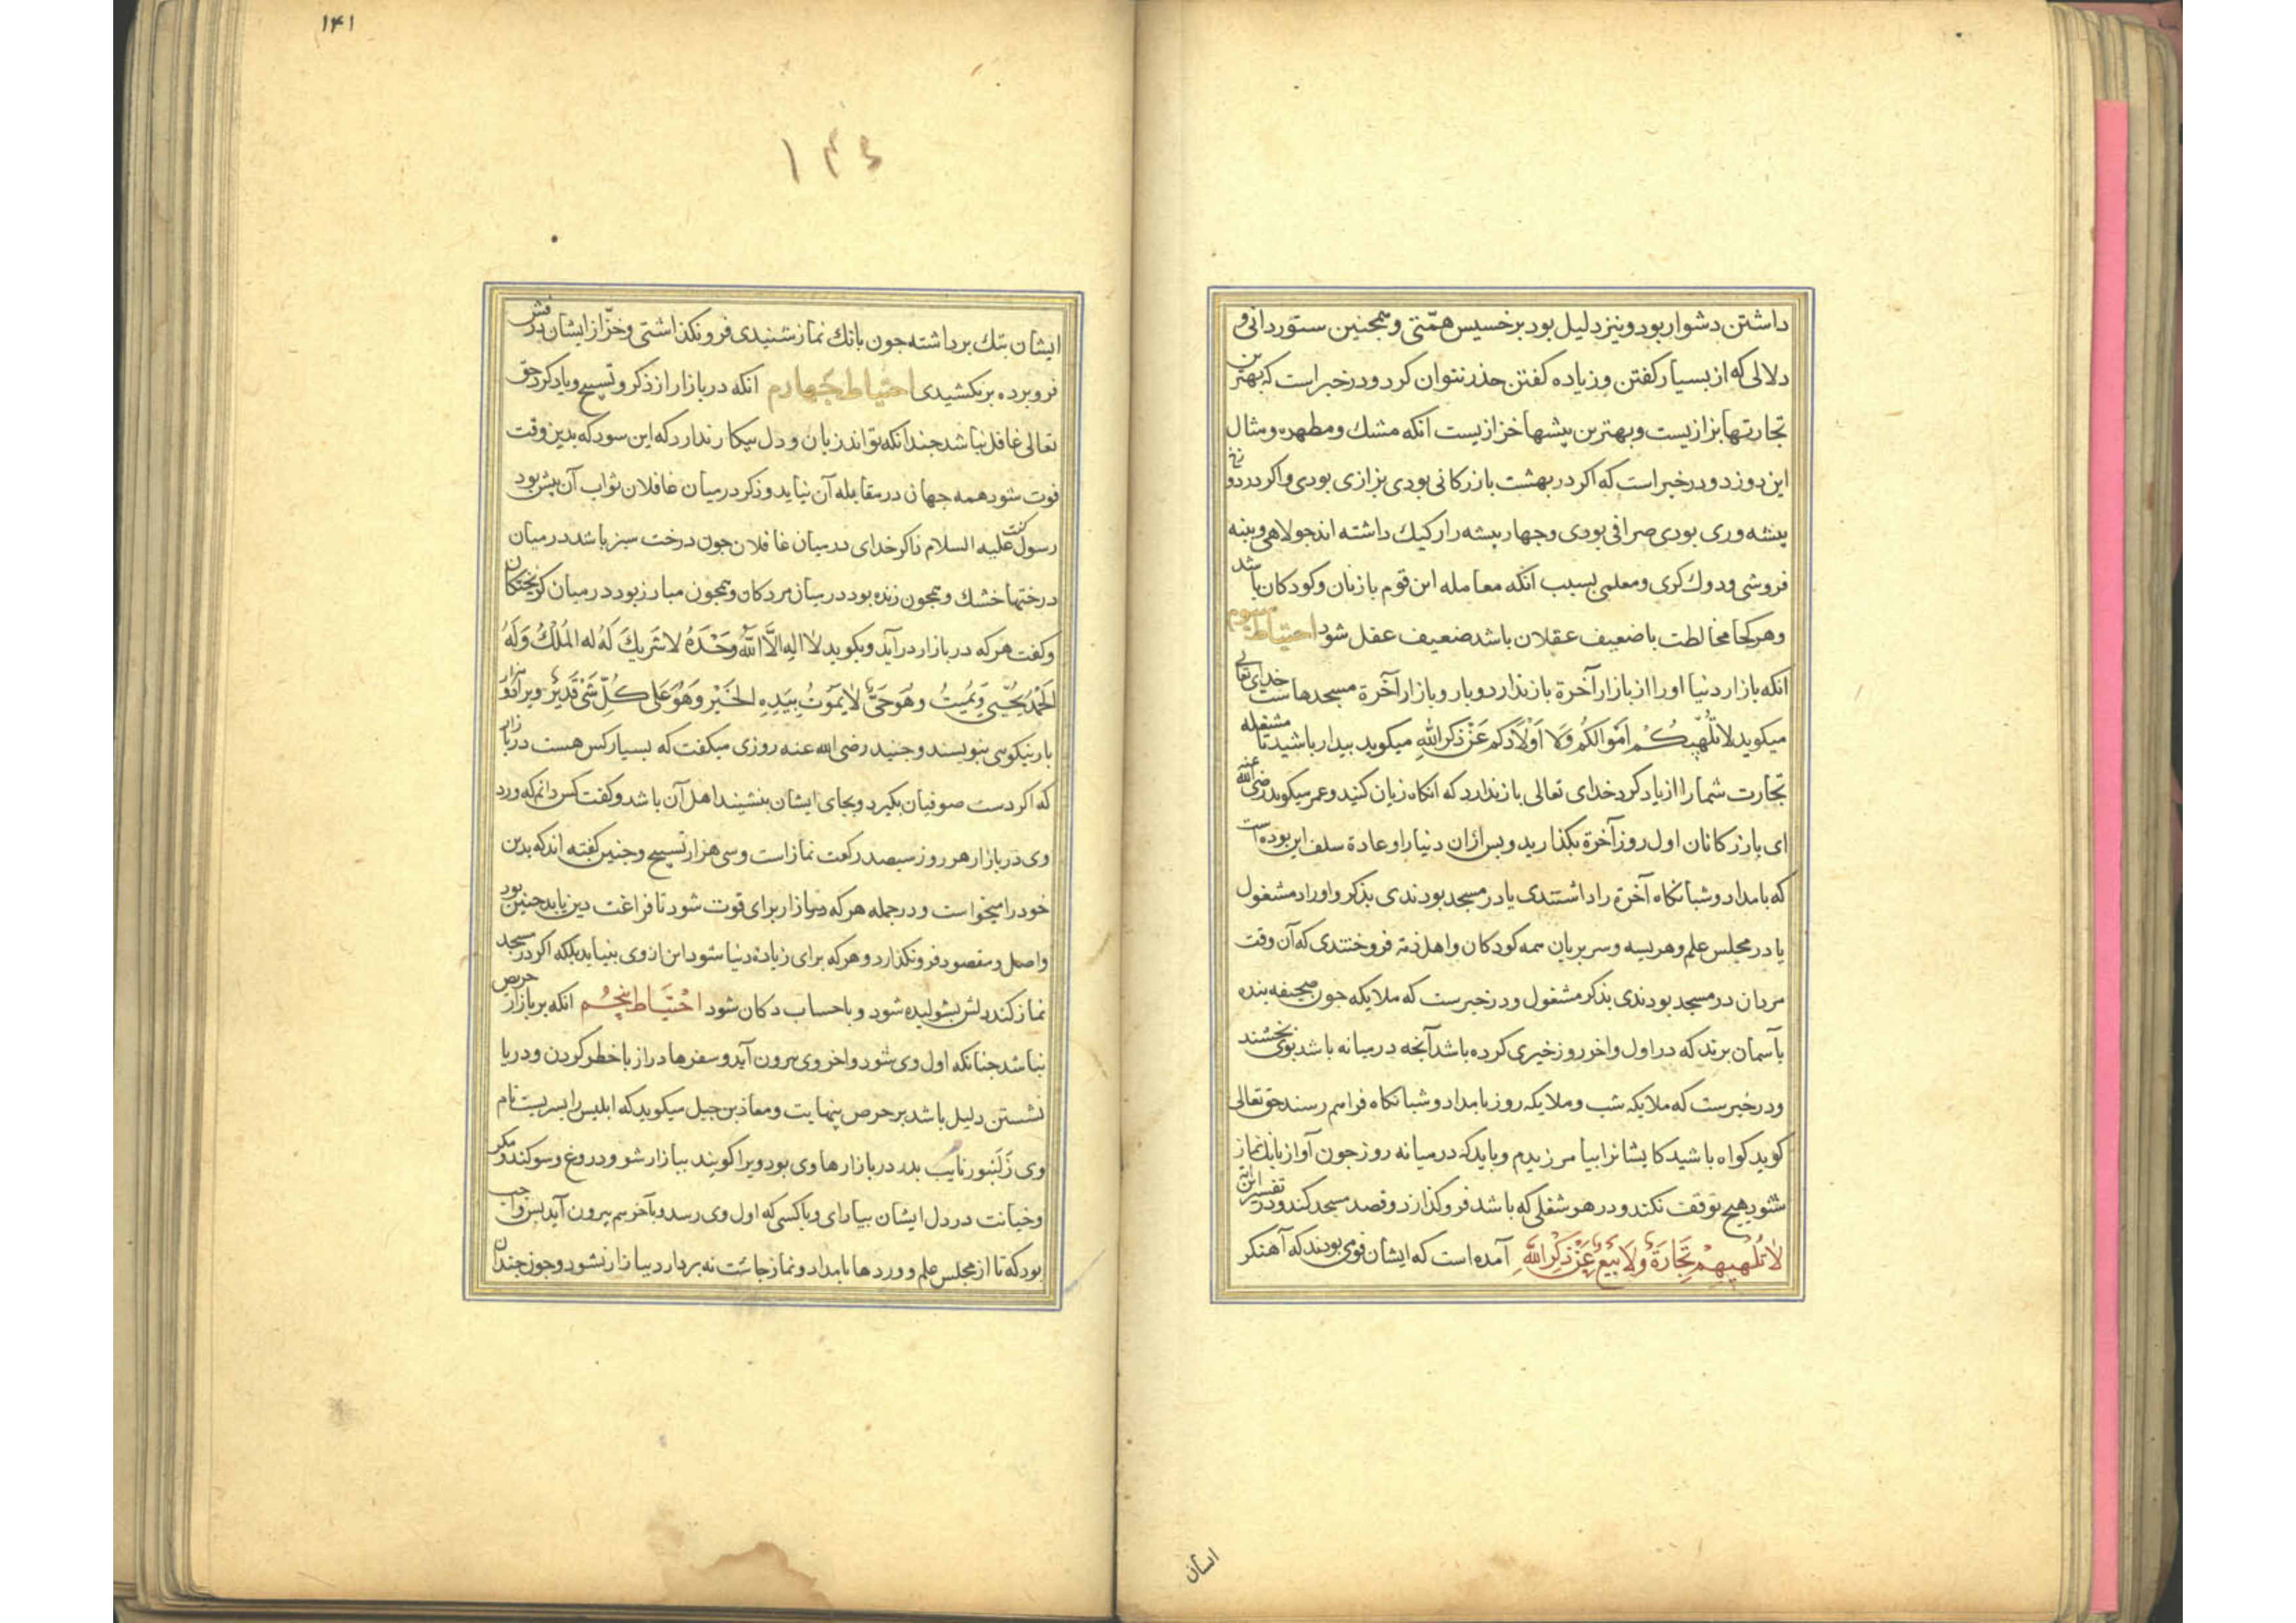 داشتن دشوار بود و نیز دلیل بود بر خسیس همّتی و همجنین ستوردانی و
دلالی که از بسیار کفتن و زیاده کفتن حذر نتوان کرد و در خبر است که بهترین
تجارتها بزازیست و بهترین پیشها خزازیست انکه مشک و مطهره و مثال
این دوزد و در خبر است که اکر در بهشت بازرکانی بودی بزازی بودی و اکر در دوزخ
پیشه وری بودی صرافی بودی و جهار پیشه را رکیک داشته اند جولاهی و پنبه
فروشی و دوک کری و معلمی بسبب انکه معامله این قوم با زنان و کودکان باشد
و هر کجا مخالطت با ضعیف عقلان باشد ضعیف عقل شود احتیاط سوم
انکه بازار دنیا او را از بازار آخرة باز ندارد و بازار آخرة مسجدهاست خدای تعالی
میکوید لَا تُلْهِیکُمْ اَمْوَالُکُمْ وَلَا اَوْلَادُکُم عَنْ ذِکْرِ اللهِ میکوید بیدار باشید تا مشغله
تجارت شما را از یاد کرد خدای تعالی باز ندارد که انکاه زیان کنید و عمر میکوید رضی الله عنه
ای بازرکانان اول روز آخرة بکذارید و پس ازان دنیا را و عادة سلف این بوده است
که بامداد و شبانکاه آخرة را داشتندی یا در مسجد بودندی بذکر و اوراد مشغول
یا در مجلس علم و هریسه و سر بریان همه کودکان و اهل ذمه فروختندی که آن وقت
مردان در مسجد بودندی بذکر مشغول و در خبرست که ملایکه جون صحیفه بنده
بآسمان برند که در اول و اخر روز خیری کرده باشد آنجه در میانه باشد بوی بخشند
و در خبرست که ملایکه شب و ملایکه روز بامداد و شبانکاه فراهم رسند حق تعالی
کوید کواه باشید کایشانرا بیامرزیدم و باید که در میانه روز جون آواز بانک نماز
شنود هیج توقف نکند و در هر شغلی که باشد فروکذارد و قصد مسجد کند و در تفسیر این آیه
لَا تُلْهِیهِمْ تِجَارَةٌ وَلَا بَیْعٌ عَنْ ذِکْرِ اللهِ آمده است که ایشان قومی بودند که آهنکر
ایشان
۱۴۱
ایشان پتک برداشته جون بانک نماز شنیدی فرو نکذاشتی و خزّاز ایشان درفش
فرو برده برنکشیدی احتیاط جهارم انکه در بازار از ذکر و تسبیح و یاد کرد حق
تعالی غافل نباشد جندانکه تواند زبان و دل بیکار ندارد که این سود که بدین وقت
فوت شود همه جهان در مقابله آن نیاید و ذکر در میان غافلان ثواب آن بیش بود
رسول کفت علیه السلام ذاکر خدای در میان غافلان جون درخت سبز باشد در میان
درختها خشک و همجون زنده بود در میان مردکان و همجون مبارز بود در میان کریختکان
و کفت هر که در بازار درآید و بکوید لَا اِلهَ اِلَّا اللّهُ وَحْدَهُ لَا شَرِیکَ لَهُ لَهُ المُلْکُ وَلَهُ
الحَمْدُ یُحْیِی وَیُمِیتُ وَهُوَ حَیٌّ لَا یَمُوتُ بِیَدِهِ الخَیْر وَهُوَ عَلَی کُلِّ شَیْءٍ قَدِیرٌ ویرا دو هزار
بار نیکویی بنویسند و جنید رضی الله عنه روزی میکفت که بسیار کس هست در بازار
که اکر دست صوفیان بکیرد و بجای ایشان بنشیند اهل آن باشد و کفت کس دانم که ورد
وی در بازار هر روز سیصد رکعت نماز است و سی هزار تسبیح و جنین کفته اند که بدین
خود را میخواست و در جمله هر که در بازار برای قوت شود تا فراغت دین یابد جنین بود
و اصل و مقصود فرو نکذارد و هر که برای زیادة دنیا شود این از وی نیاید بلکه اکر در مسجد
نماز کند دلش بشولیده شود و با حساب دکان شود احتیاط پنجم انکه بر بازار حریص
نباشد جنانکه اول وی شود و اخر وی بیرون آید و سفرها دراز با خطر کردن و در دریا
نشستن دلیل باشد بر حرص بنهایت و معاذ بن جبل میکوید که ابلیس را پسریست نام
وی زَلَنبور نایب پدر در بازارها وی بود ویرا کویند ببازار شو و دروغ و سوکند و مکر
و خیانت در دل ایشان بیارای و با کسی که اول وی رسد و بآخر هم بیرون آید پس واجب
بود که تا از مجلس علم و وردها بامداد و نماز جاشت نه بردارد ببازار نشود و جون جندان